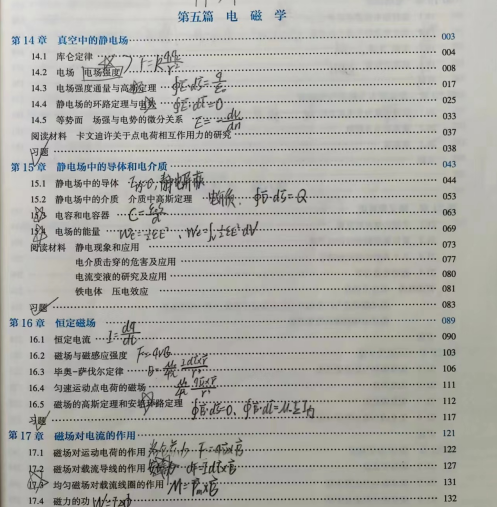 第五篇 电 磁 学
第14章 真空中的静电场 003
14.1 库仑定律 004
14.2 电场 电场强度 008
14.3 电场强度通量与高斯定理 017
14.4 静电场的环路定理与电势 025
14.5 等势面 场强与电势的微分关系 033
阅读材料 卡文迪许关于点电荷相互作用力的研究 037
习题 038
第15章 静电场中的导体和电介质 043
15.1 静电场中的导体 044
15.2 静电场中的介质 介质中高斯定理 电介质: ∮D·dS=Q 053
15.3 电容和电容器 063
15.4 电场的能量 069
阅读材料 静电现象和应用 073
电介质击穿的危害及应用 077
电流变液的研究及应用 080
铁电体 压电效应 081
习题 083
第16章 恒定磁场 089
16.1 恒定电流 I=dq/dt 090
16.2 磁场与磁感应强度 F=qvB 103
16.3 毕奥-萨伐尔定律 106
16.4 匀速运动点电荷的磁场 111
16.5 磁场的高斯定理和安培环路定理 112
习题 117
第17章 磁场对电流的作用 121
17.1 磁场对运动电荷的作用 122
17.2 磁场对载流导线的作用 127
17.3 均匀磁场对载流线圈的作用 131
17.4 磁力的功 132